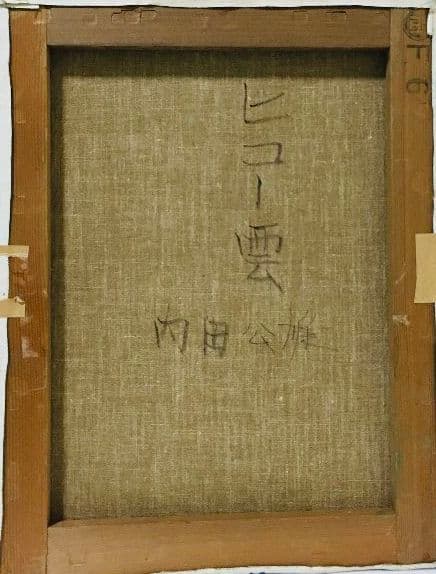 ヒコー雲
内田公雄
F6